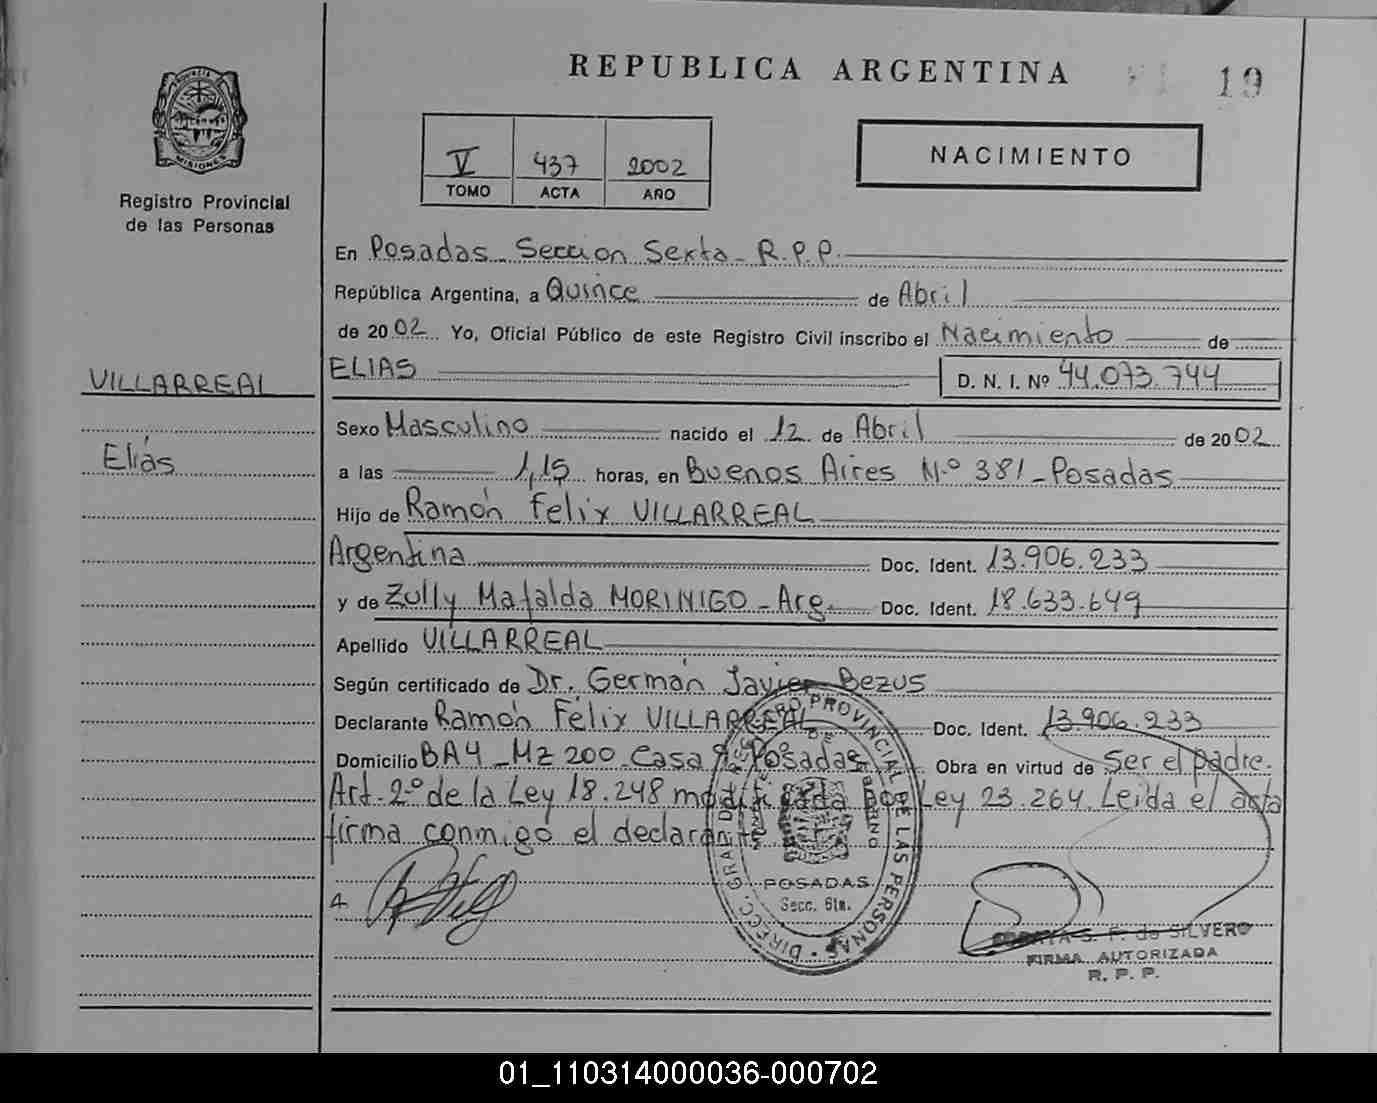 REPUBLICA ARGENTINA
19
MISIONES
Registro Provincial
de las Personas
V 437 2002
TOMO ACTA AÑO
NACIMIENTO
En Posadas - Seccion Sexta - R.P.P.
República Argentina, a Quince de Abril
de 2002 Yo, Oficial Público de este Registro Civil inscribo el Nacimiento de
ELIAS D. N. I. Nº 44.073.744
VILLARREAL
Elías
Sexo Masculino nacido el 12 de Abril de 2002
a las 1,15 horas, en Buenos Aires N.º 381 - Posadas
Hijo de Ramón Felix VILLARREAL
Argentina Doc. Ident. 13.906.233
y de Zully Mafalda MORINIGO - Arg. Doc. Ident. 18.633.649
Apellido VILLARREAL
Según certificado de Dr. Germán Javier Bezus
Declarante Ramón Félix VILLARREAL Doc. Ident. 13.906.233
Domicilio BA4 - Mz 200 - Casa Posadas Obra en virtud de Ser el padre.
Art. 2º de la Ley 18.248 modificada por Ley 23.264. Leida el acta
firma conmigo el declarante
DIRECC. GRAL. DE REGISTRO PROVINCIAL DE LAS PERSONAS
POSADAS
Secc. 6ta.
S. F. de SILVERO
FIRMA AUTORIZADA
R. P. P.
01_110314000036-000702